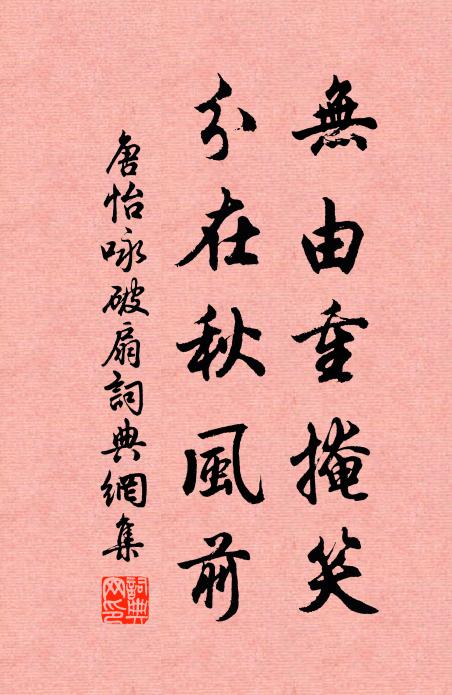 無由重掩笑
分在秋風前
唐怡咏破扇詞典網集
詞典
網印